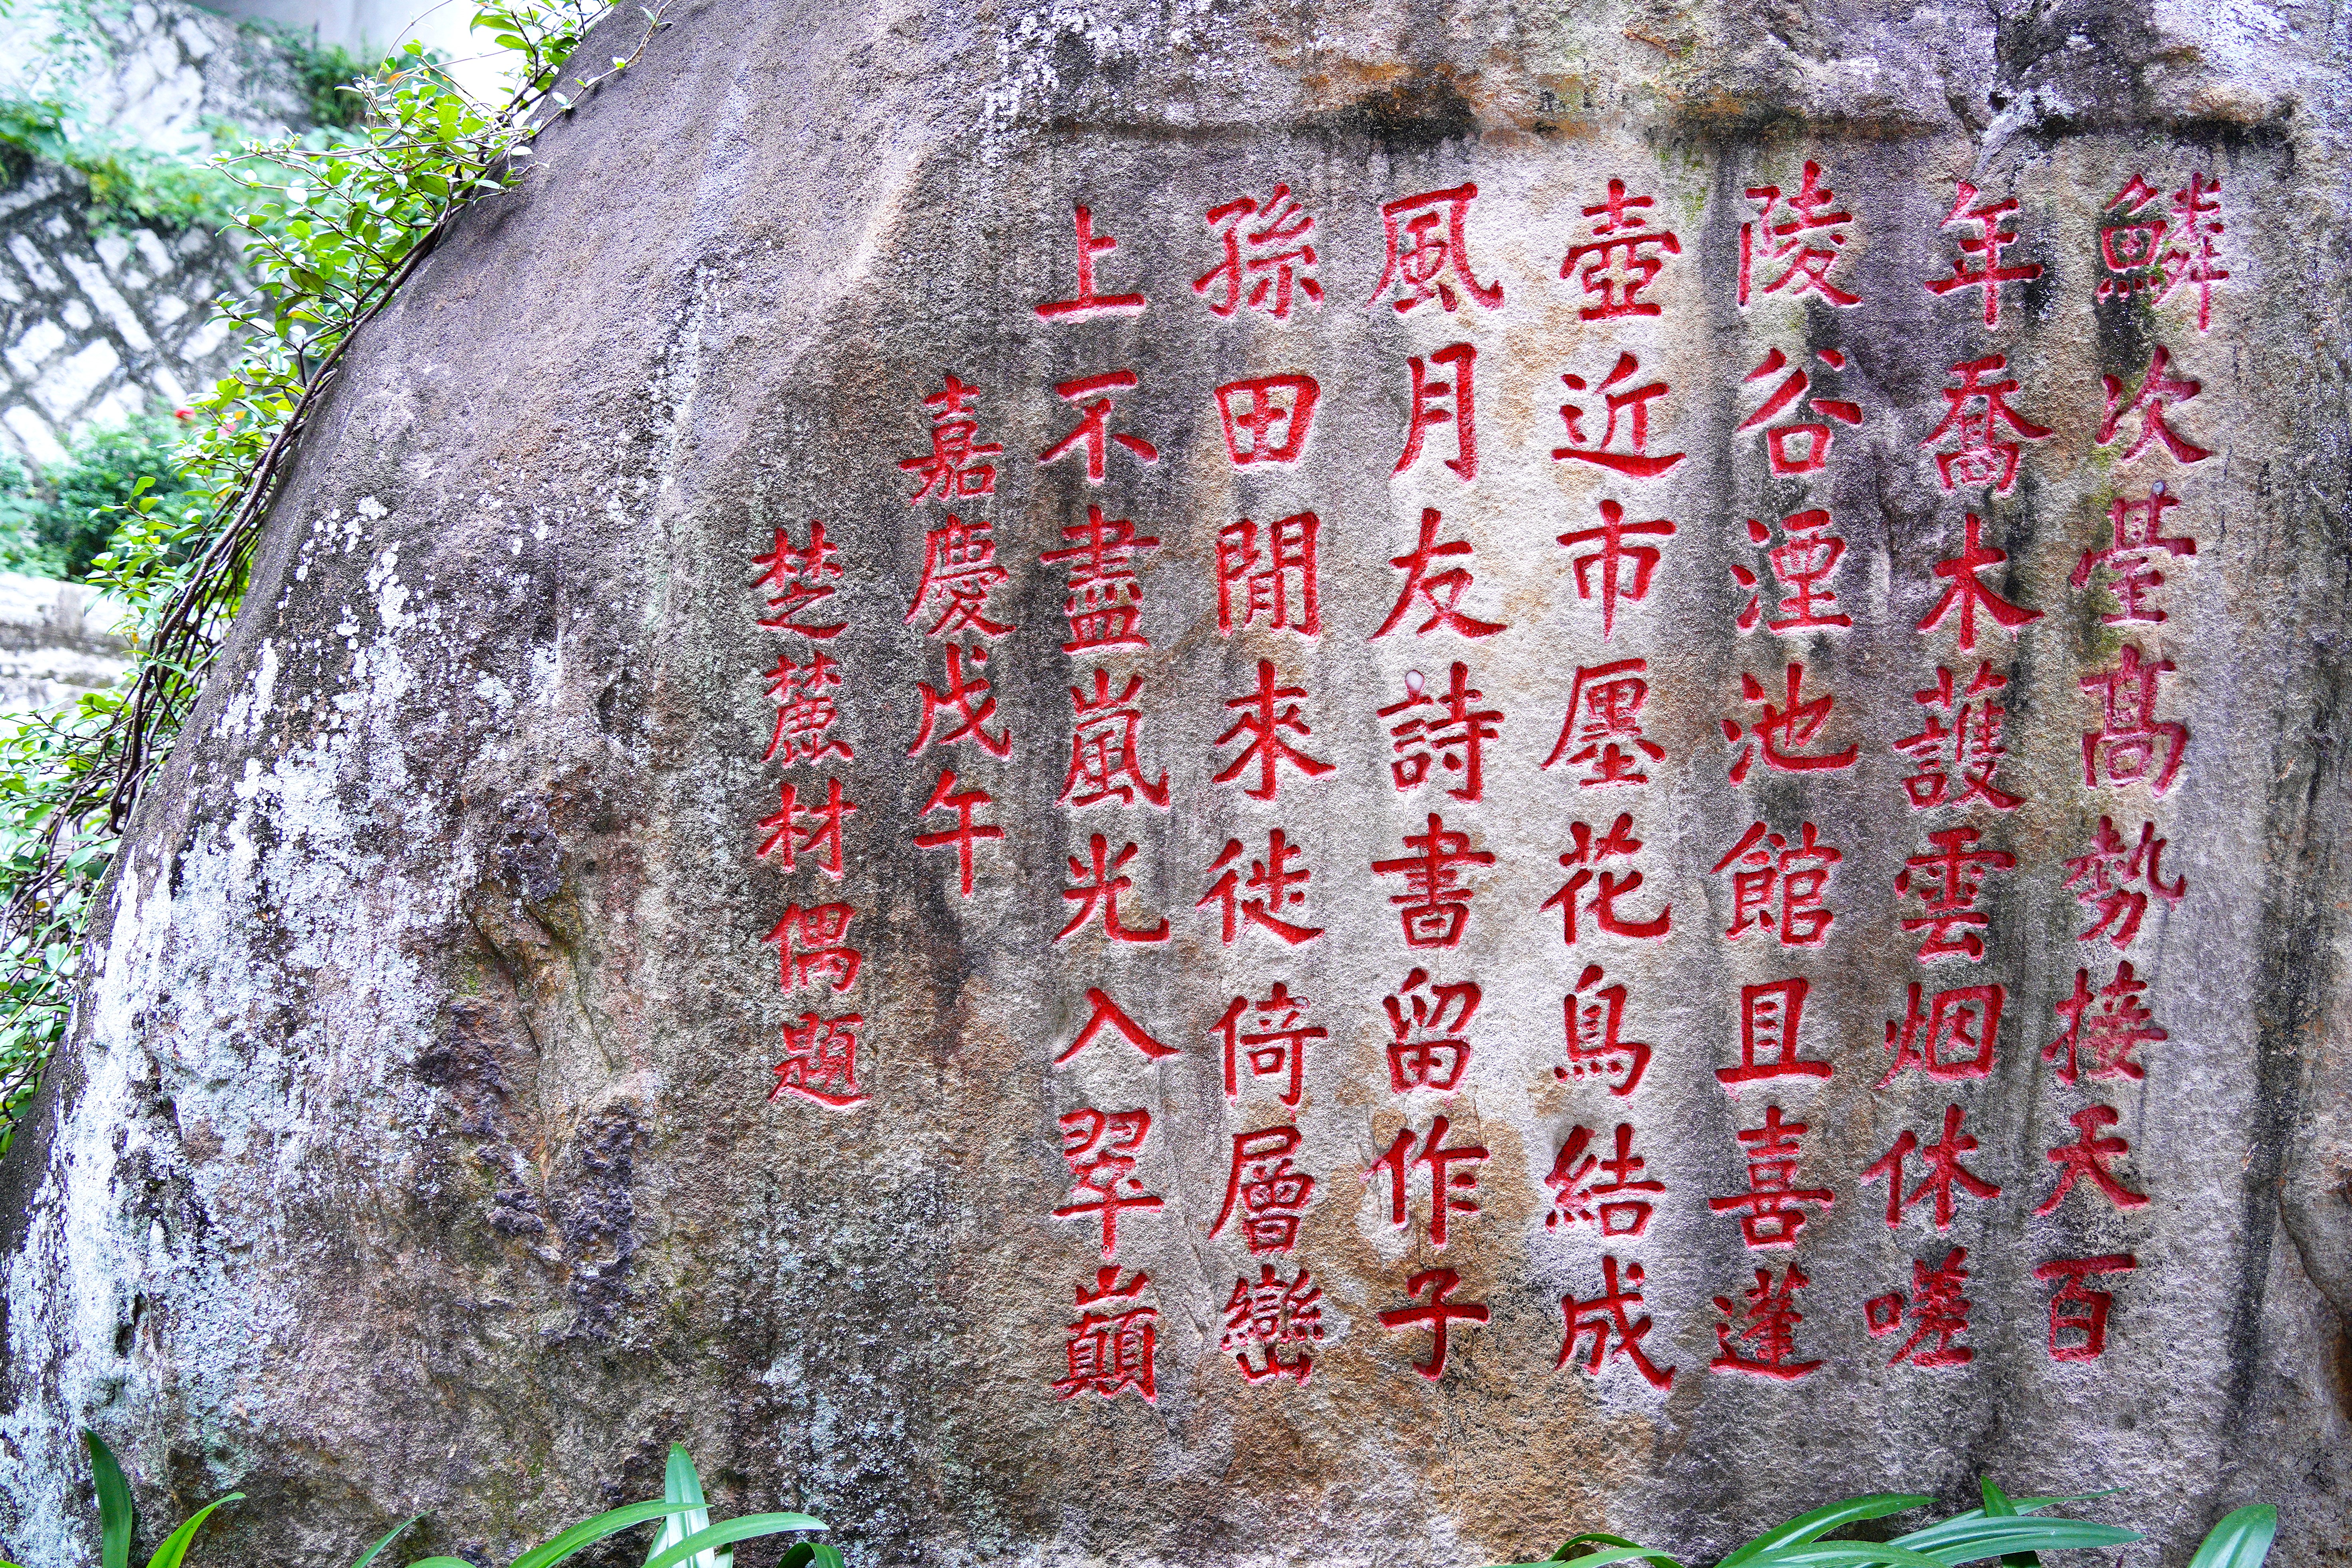 鱗次臺高勢接天百
年喬木護雲烟休嗟
陵谷湮池館且喜蓬
壺近市廛花鳥結成
風月友詩書留作子
孫田閒來徙倚層巒
上不盡嵐光入翠巔
嘉慶戊午
芝麓材偶題